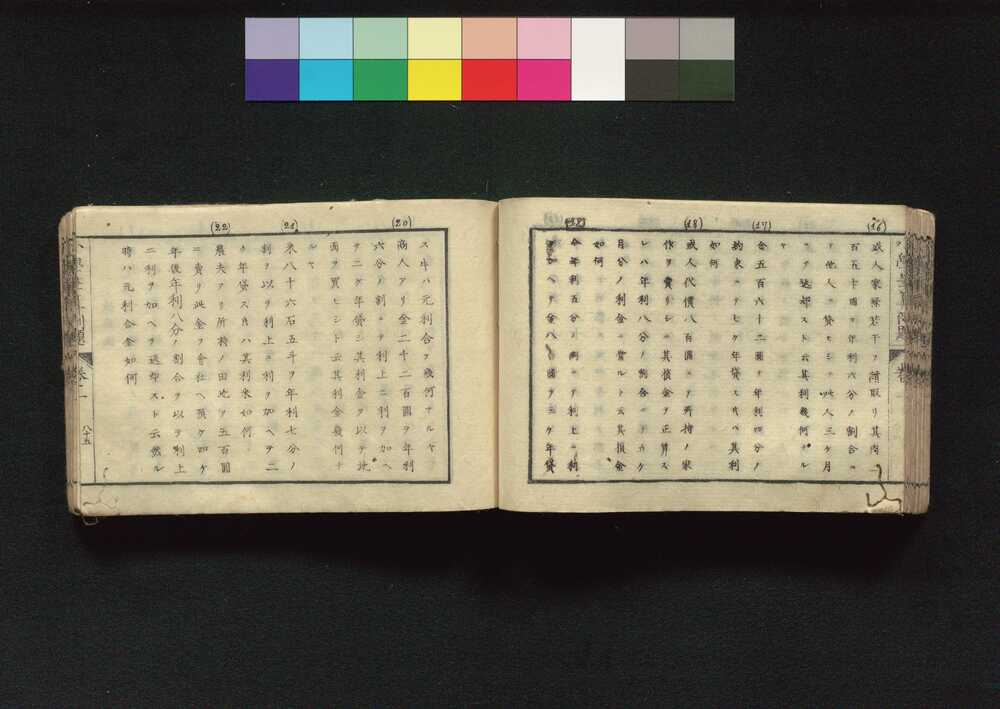 (16)
或人家祿若干ヲ請取リ其內
百五十圓ヲ年利六分ノ割合ニ
テ他人ニ貸セシニ此人三ケ月
ニテ返却スト云其利幾何ナル
ヤ
(17)
金五百六十二圓ヲ年利四分ノ
約束ニテ七ケ年貸ス時ハ其利
如何
(18)
或人代價八百圓ニテ所持ノ家
作ヲ賣リシニ其損金ヲ正算ス
レハ年利八分ノ割合ニテ
月分ノ利金ニ當ルト云其損金
如何
(19)
今年利五分ノ割ニテ利上ニ利
ヲ加ヘテ金八 圓ヲ三ケ年貸
ス片ハ元利合ヲ幾何ナルヤ
(20)
商人アリ金二千二百圓ヲ年利
六分ノ割ニテ利上ニ利ヲ加ヘ
テ二ケ年貸シ其利金ヲ以テ地
面ヲ買ヒシト云其利金幾何ナ
ルヤ
(21)
米八十六石五斗ヲ年利七分ノ
割ヲ以テ利上ニ利ヲ加ヘテ二
ケ年貸ス片ハ其利米如何
(22)
農夫アリ所持ノ田地ヲ五百圓
ニ賣リ此金ヲ會社ヘ預ケ四ケ
年後年利八分ノ割合ヲ以テ利上
ニ利ヲ加ヘテ返却スト云然ル
時ハ元利合金如何
八十五